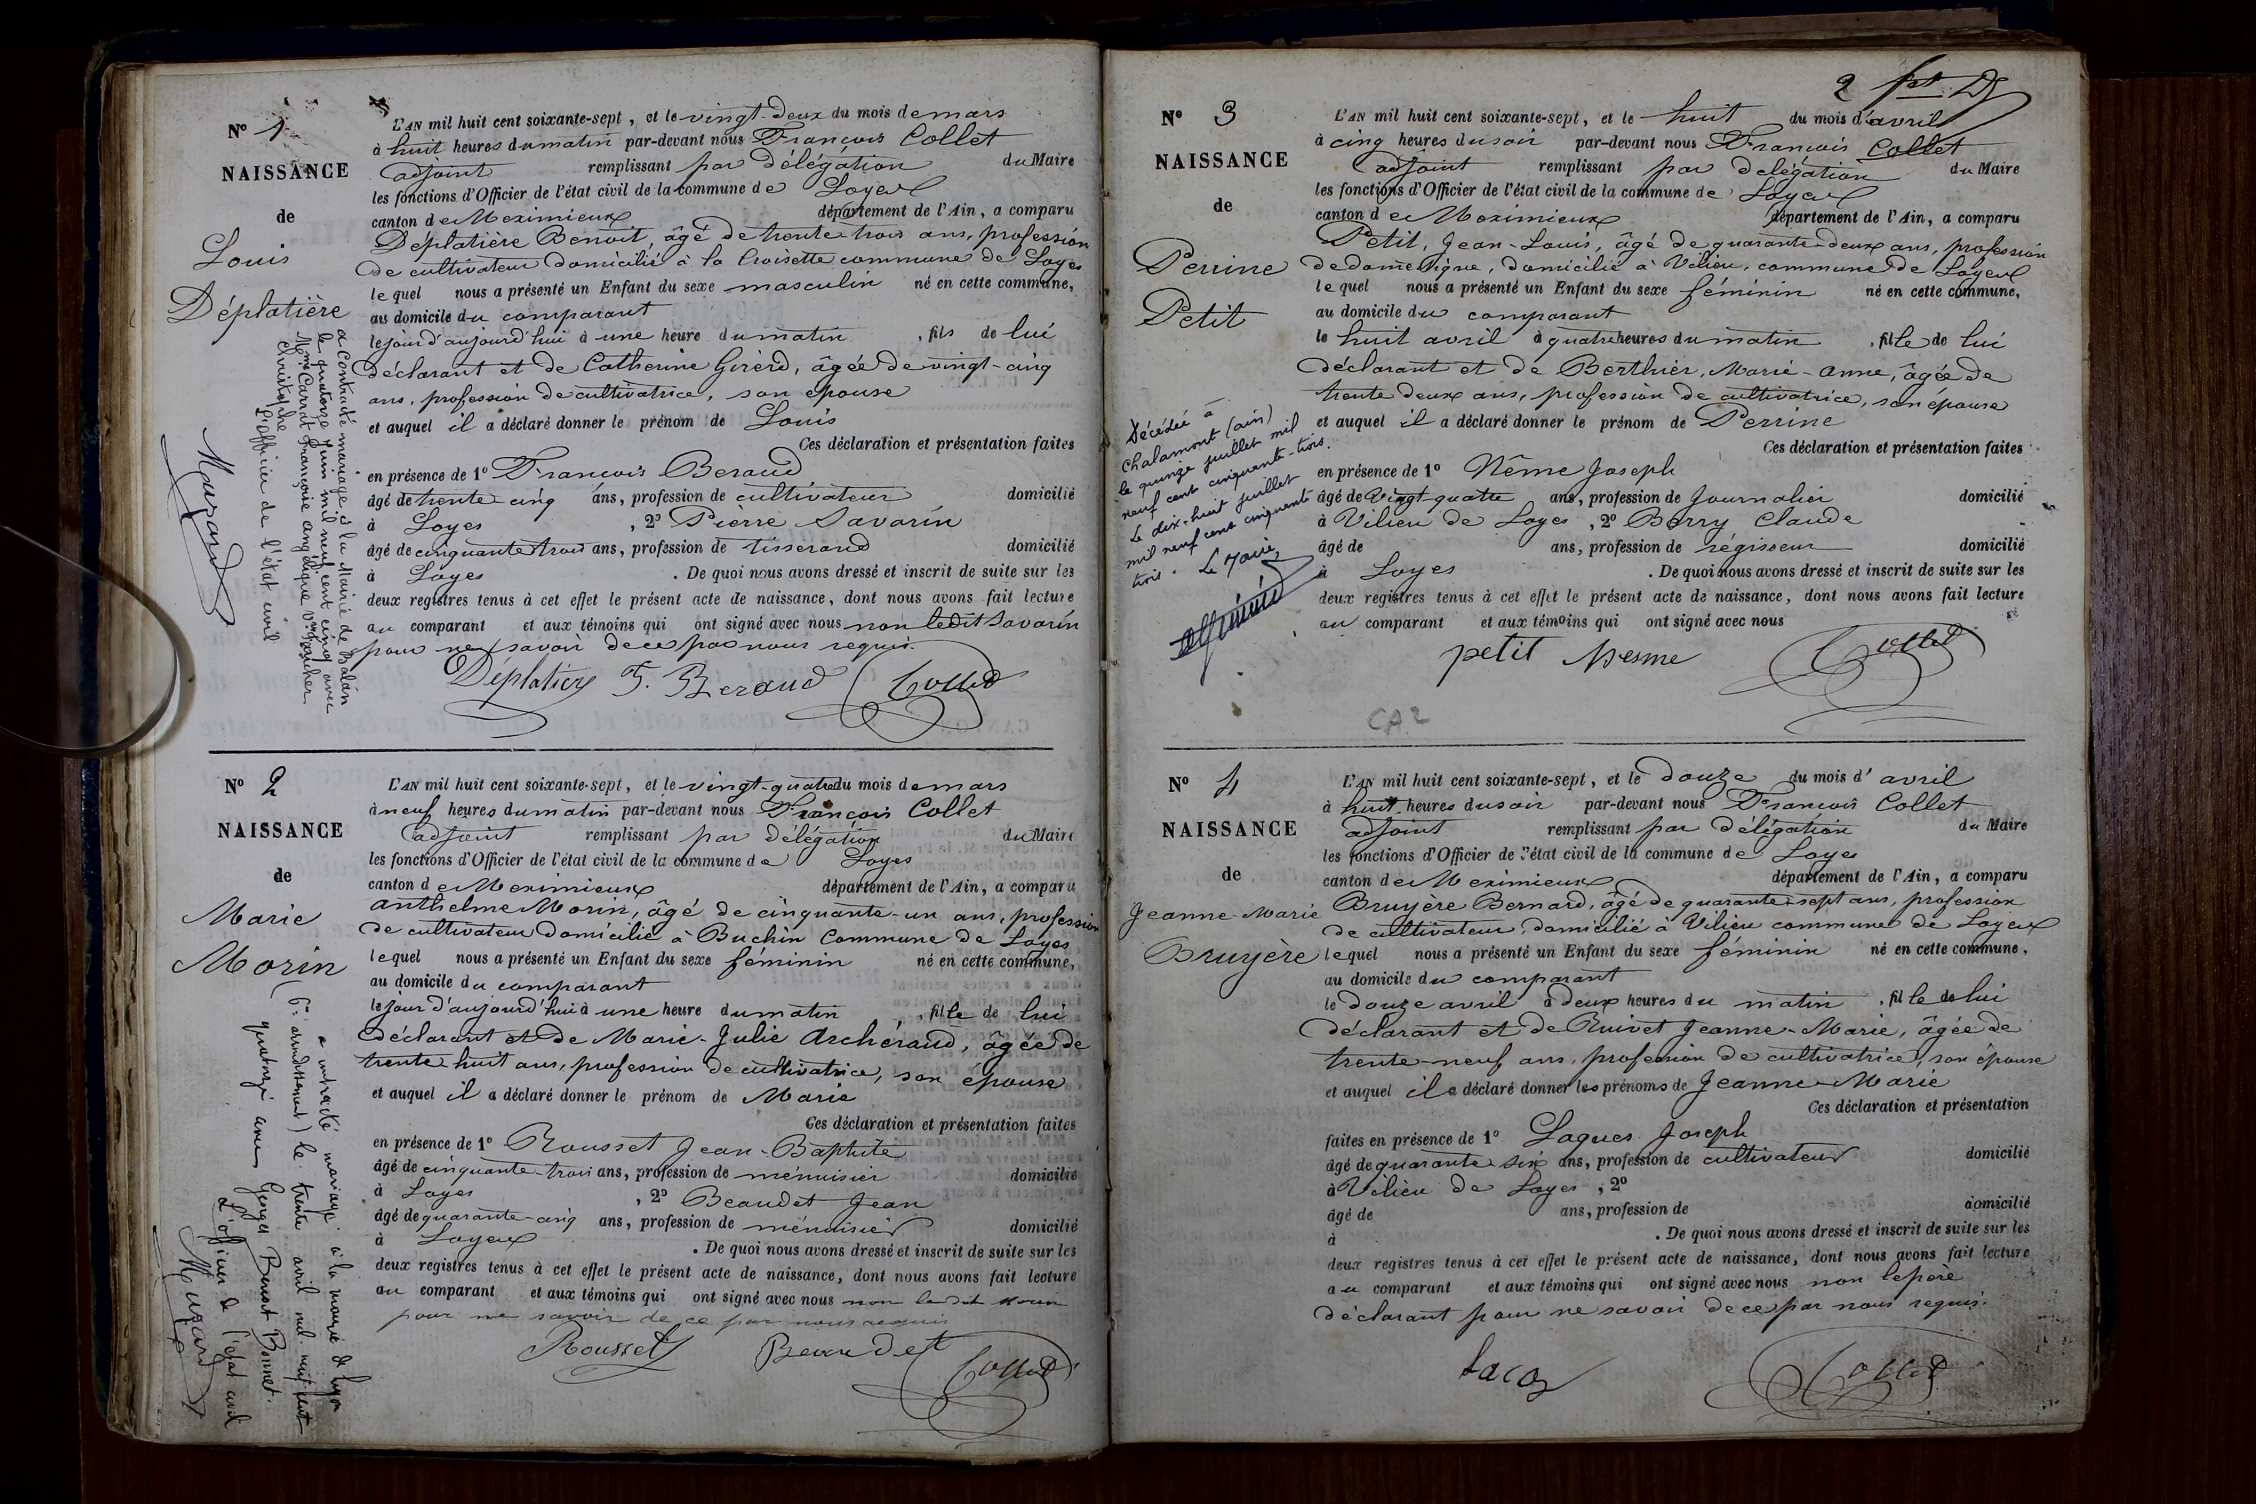 N° 1
NAISSANCE
de
Louis
Déplatière
L'AN mil huit cent soixante-sept, et le vingt-deux du mois de mars
à huit heures du matin par-devant nous François Collet
adjoint remplissant par délégation du Maire
les fonctions d'Officier de l'état civil de la commune de Loyes
canton de Meximieux département de l'Ain, a comparu
Déplatière Benoit, âgé de trente-trois ans, profession
de cultivateur domicilié à la Croisette commune de Loyes
lequel nous a présenté un Enfant du sexe masculin né en cette commune,
au domicile du comparant
le jour d'aujourd'hui à une heure du matin, fils de lui
déclarant et de Catherine Girerd, âgée de vingt-cinq
ans, profession de cultivatrice, son épouse
et auquel il a déclaré donner le prénom de Louis
Ces déclaration et présentation faites
en présence de 1° François Beraud
âgé de trente cinq ans, profession de cultivateur domicilié
à Loyes, 2° Pierre Savarin
âgé de cinquante trois ans, profession de tisserand domicilié
à Loyes. De quoi nous avons dressé et inscrit de suite sur les
deux registres tenus à cet effet le présent acte de naissance, dont nous avons fait lecture
au comparant et aux témoins qui ont signé avec nous non ledit Savarin
pour ne savoir de ce par nous requis.
Déplatière F. Beraud Collet
a contracté mariage à la Mairie de Balan
le quatorze juin mil neuf cent cinq avec
Mme Carrat Françoise angélique Vve
Christophe
L'officier de l'état civil
N° 2
NAISSANCE
de
Marie
Morin
L'AN mil huit cent soixante-sept, et le vingt-quatre du mois de mars
à neuf heures du matin par-devant nous François Collet
adjoint remplissant par délégation du Maire
les fonctions d'Officier de l'état civil de la commune de Loyes
canton de Meximieux département de l'Ain, a comparu
anthelme Morin, âgé de cinquante-un ans, profession
de cultivateur domicilié à Buchin Commune de Loyes
lequel nous a présenté un Enfant du sexe féminin né en cette commune,
au domicile du comparant
le jour d'aujourd'hui à une heure du matin, fille de lui
déclarant et de Marie-Julie Archéraud, âgée de
trente huit ans, profession de cultivatrice, son épouse
et auquel il a déclaré donner le prénom de Marie
Ces déclaration et présentation faites
en présence de 1° Rousset Jean-Baptiste
âgé de cinquante-trois ans, profession de menuisier domicilié
à Loyes, 2° Beaudet Jean
âgé de quarante-cinq ans, profession de menuisier domicilié
à Loyes. De quoi nous avons dressé et inscrit de suite sur les
deux registres tenus à cet effet le présent acte de naissance, dont nous avons fait lecture
au comparant et aux témoins qui ont signé avec nous non ledit Morin
pour ne savoir de ce par nous requis
Rousset Beaudet Collet
a contracté mariage à la mairie de Lyon
(6e arrondissement) le trente avril mil neuf cent
quatorze avec Georges Benoit Bonnet.
L'officier de l'état civil
2
N° 3
NAISSANCE
de
Perrine
Petit
L'AN mil huit cent soixante-sept, et le huit du mois d'avril
à cinq heures du soir par-devant nous François Collet
adjoint remplissant par délégation du Maire
les fonctions d'Officier de l'état civil de la commune de Loyes
canton de Meximieux département de l'Ain, a comparu
Petit, Jean-Louis, âgé de quarante-deux ans, profession
de domestique, domicilié à Vilieu, commune de Loyes
lequel nous a présenté un Enfant du sexe féminin né en cette commune,
au domicile du comparant
le huit avril à quatre heures du matin, fille de lui
déclarant et de Berthier, Marie-Anne, âgée de
trente deux ans, profession de cultivatrice, son épouse
et auquel il a déclaré donner le prénom de Perrine
Ces déclaration et présentation faites
en présence de 1° Nême Joseph
âgé de vingt-quatre ans, profession de Journalier domicilié
à Vilieu de Loyes, 2° Berry Claude
âgé de ans, profession de régisseur domicilié
à Loyes. De quoi nous avons dressé et inscrit de suite sur les
deux registres tenus à cet effet le présent acte de naissance, dont nous avons fait lecture
au comparant et aux témoins qui ont signé avec nous
petit Nesme Collet
Décédée à
Chalamont (ain)
le quinze juillet mil
neuf cent cinquante-trois.
Le dix-huit juillet
mil neuf cent cinquante
trois. Le Maire,
CA 2
N° 4
NAISSANCE
de
Jeanne-Marie
Bruyère
L'AN mil huit cent soixante-sept, et le douze du mois d'avril
à huit heures du soir par-devant nous François Collet
adjoint remplissant par délégation du Maire
les fonctions d'Officier de l'état civil de la commune de Loyes
canton de Meximieux département de l'Ain, a comparu
Bruyère Bernard, âgé de quarante-sept ans, profession
de cultivateur, domicilié à Vilieu commune de Loyes
lequel nous a présenté un Enfant du sexe féminin né en cette commune,
au domicile du comparant
le douze avril à deux heures du matin, fille de lui
déclarant et de Ruivet Jeanne-Marie, âgée de
trente-neuf ans, profession de cultivatrice, son épouse
et auquel il a déclaré donner les prénoms de Jeanne-Marie
Ces déclaration et présentation
faites en présence de 1° Laques Joseph
âgé de quarante six ans, profession de cultivateur domicilié
à Vilieu de Loyes, 2°
âgé de ans, profession de domicilié
à. De quoi nous avons dressé et inscrit de suite sur les
deux registres tenus à cet effet le présent acte de naissance, dont nous avons fait lecture
au comparant et aux témoins qui ont signé avec nous non le père
déclarant pour ne savoir de ce par nous requis.
Collet